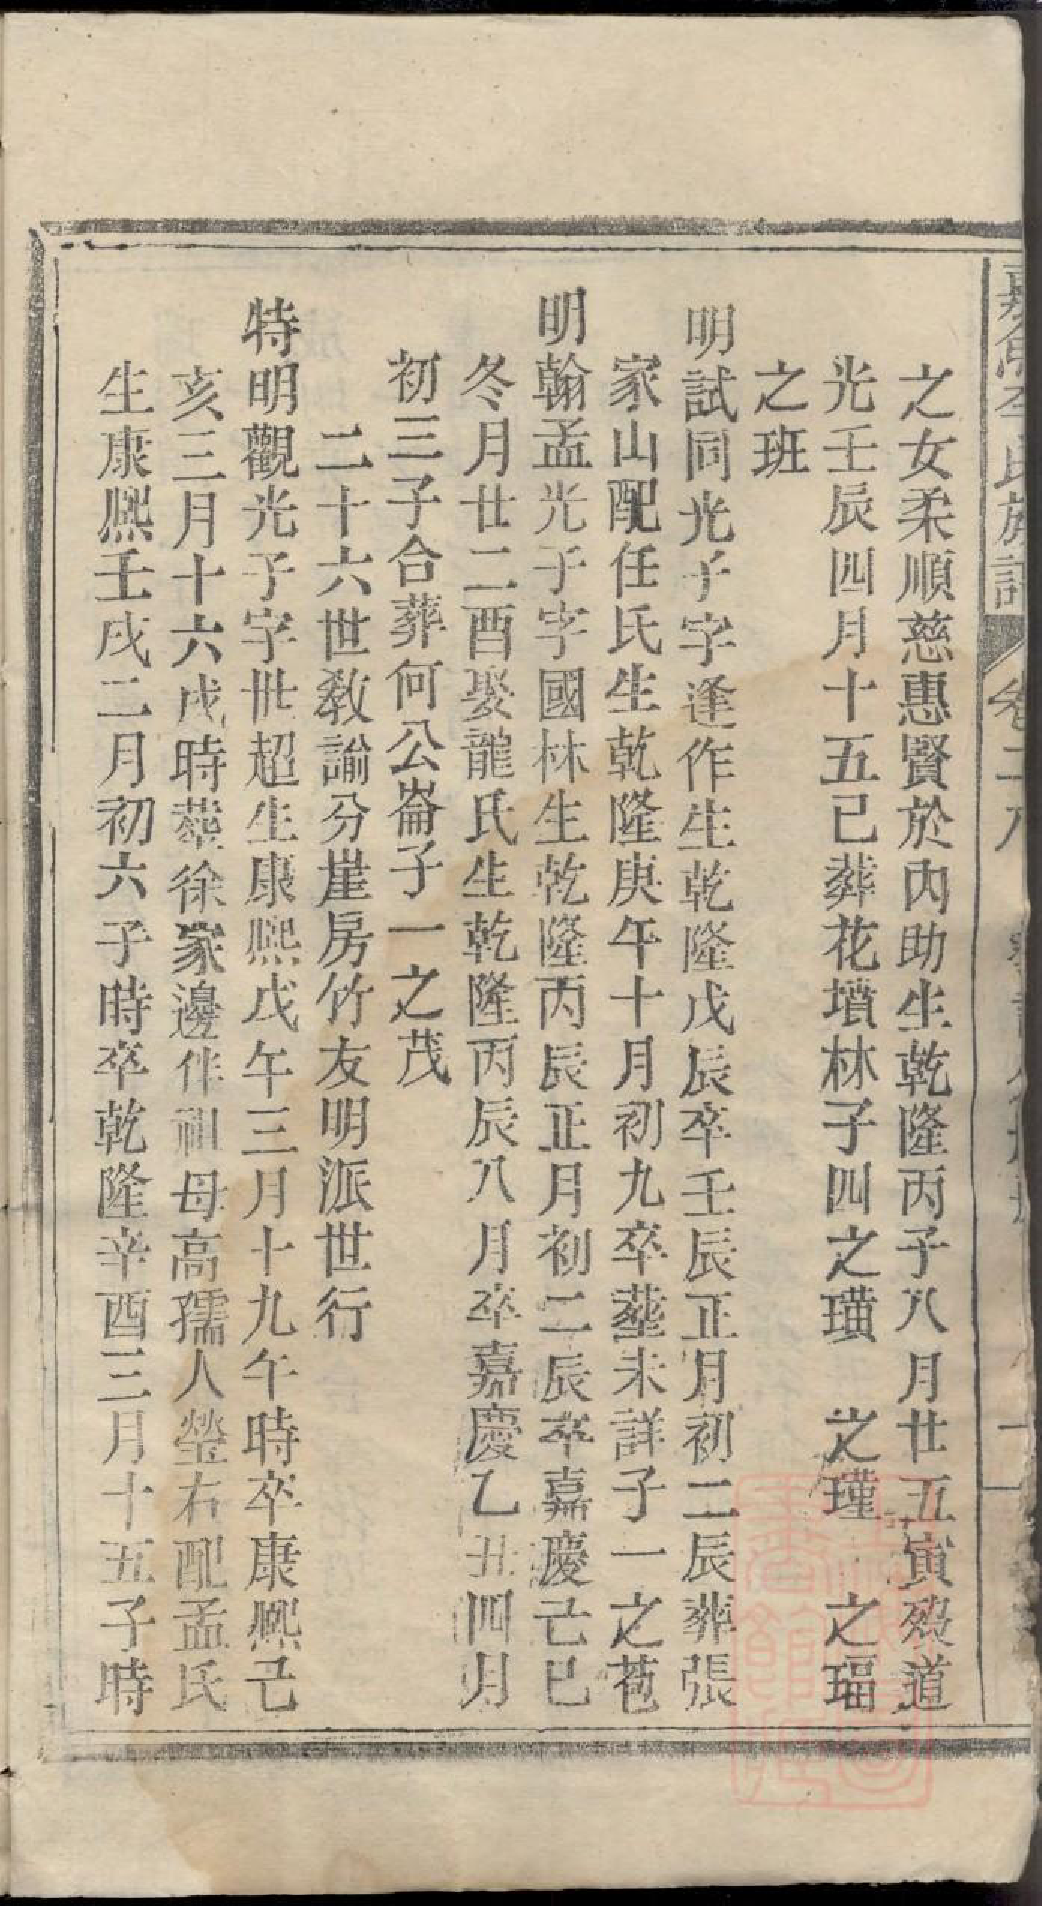 嘉魚李氏族譜 卷二八
之女柔順慈惠賢於內助生乾隆丙子八月廿五寅歿道
光壬辰四月十五巳葬花墳林子四之璜 之瑾 之瑙
之班
明試同光子字逢作生乾隆戊辰卒壬辰正月初二辰葬張
家山配任氏生乾隆庚午十月初九卒塟未詳子一之苞
明翰孟光子字國林生乾隆丙辰正月初二辰卒嘉慶己巳
冬月廿二酉娶龍氏生乾隆丙辰八月卒嘉慶乙丑四月
初三子合葬何公崙子一之茂
二十六世教諭分崖房竹友明派世行
特明觀光子字世超生康熙戊午三月十九午時卒康熙己
亥三月十六戌時塟徐家邊伴祖母高孺人塋右配孟氏
生康熙壬戌二月初六子時卒乾隆辛酉三月十五子時